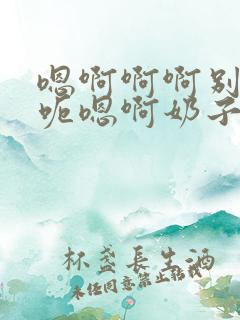 嗯啊啊啊别
呃嗯啊奶子
杯盏长生酒
未经同意禁止转载